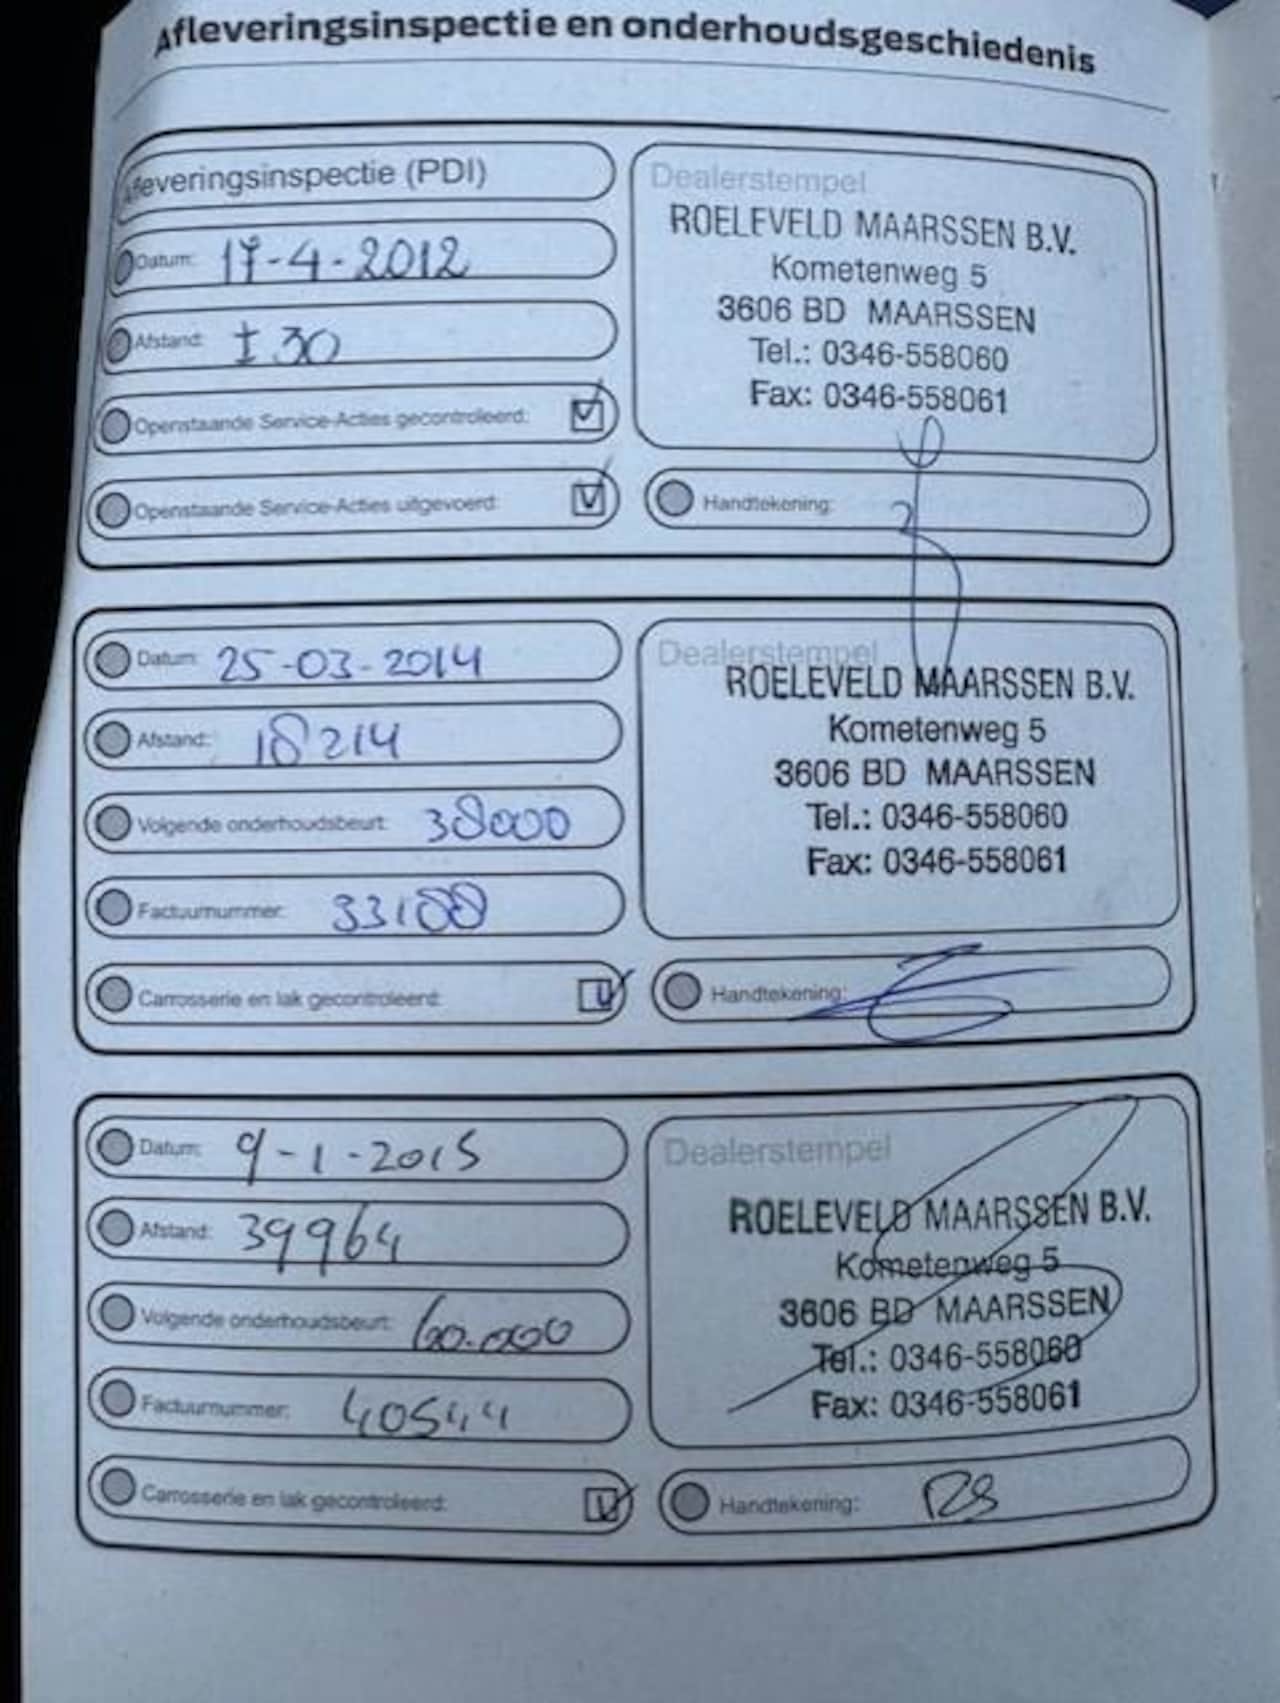 Afleveringsinspectie en onderhoudsgeschiedenis
Afleveringsinspectie (PDI)
Datum: 17-4-2012
Afstand: ± 30
Openstaande Service-Acties gecontroleerd:
Openstaande Service-Acties uitgevoerd:
Dealerstempel
ROELEVELD MAARSSEN B.V.
Kometenweg 5
3606 BD MAARSSEN
Tel.: 0346-558060
Fax: 0346-558061
Handtekening:
Datum: 25-03-2014
Afstand: 18214
Volgende onderhoudsbeurt: 38000
Factuurnummer: 33188
Carrosserie en lak gecontroleerd:
Dealerstempel
ROELEVELD MAARSSEN B.V.
Kometenweg 5
3606 BD MAARSSEN
Tel.: 0346-558060
Fax: 0346-558061
Handtekening:
Datum: 9-1-2015
Afstand: 39964
Volgende onderhoudsbeurt: 60.000
Factuurnummer: 40544
Carrosserie en lak gecontroleerd:
Dealerstempel
ROELEVELD MAARSSEN B.V.
Kometenweg 5
3606 BD MAARSSEN
Tel.: 0346-558060
Fax: 0346-558061
Handtekening: